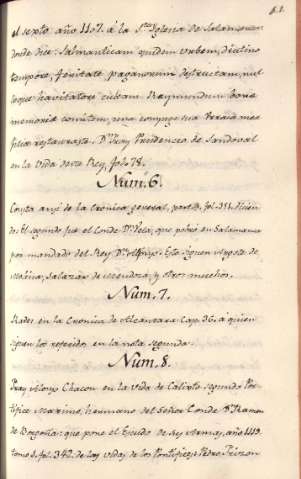 61.
el sexto año 1107. á la S.ta Iglesia de Salamanca
donde dice: Salmanticam quidem urbem, diutino
tempore, feritate paganorum destructam, nul
loque habitatore cultam Raymundum bonæ
memoriæ comitem, una conjuge tua Vrraca
restaurasse. D.n Fray Prudencio de Sandoval
en la Vida deste Rey, fol. 78.
Num. 6.
Consta assi de la Cronica general, part. fol. 311.
el segundo fue el Conde D.n Vela, que pobló en Salamanca
por mandado del Rey D.n Alfonso. Esto siguen Argote de
Molina, Salazar de Mendoza, y otros muchos.
Num. 7.
Rades en la Cronica de Alcantara Cap. 36. a quien
siguen los referidos en la nota segunda.
Num. 8.
Fray Alonso Chacon en la Vida de Calixto segundo Pon
tifice Maximo, hermano del Señor Conde D.n Ramon
de Borgoña: que pone el Escudo de sus Armas, año 1119.
tomo 1. fol. 342. de las vidas de los Pontifices: Pedro